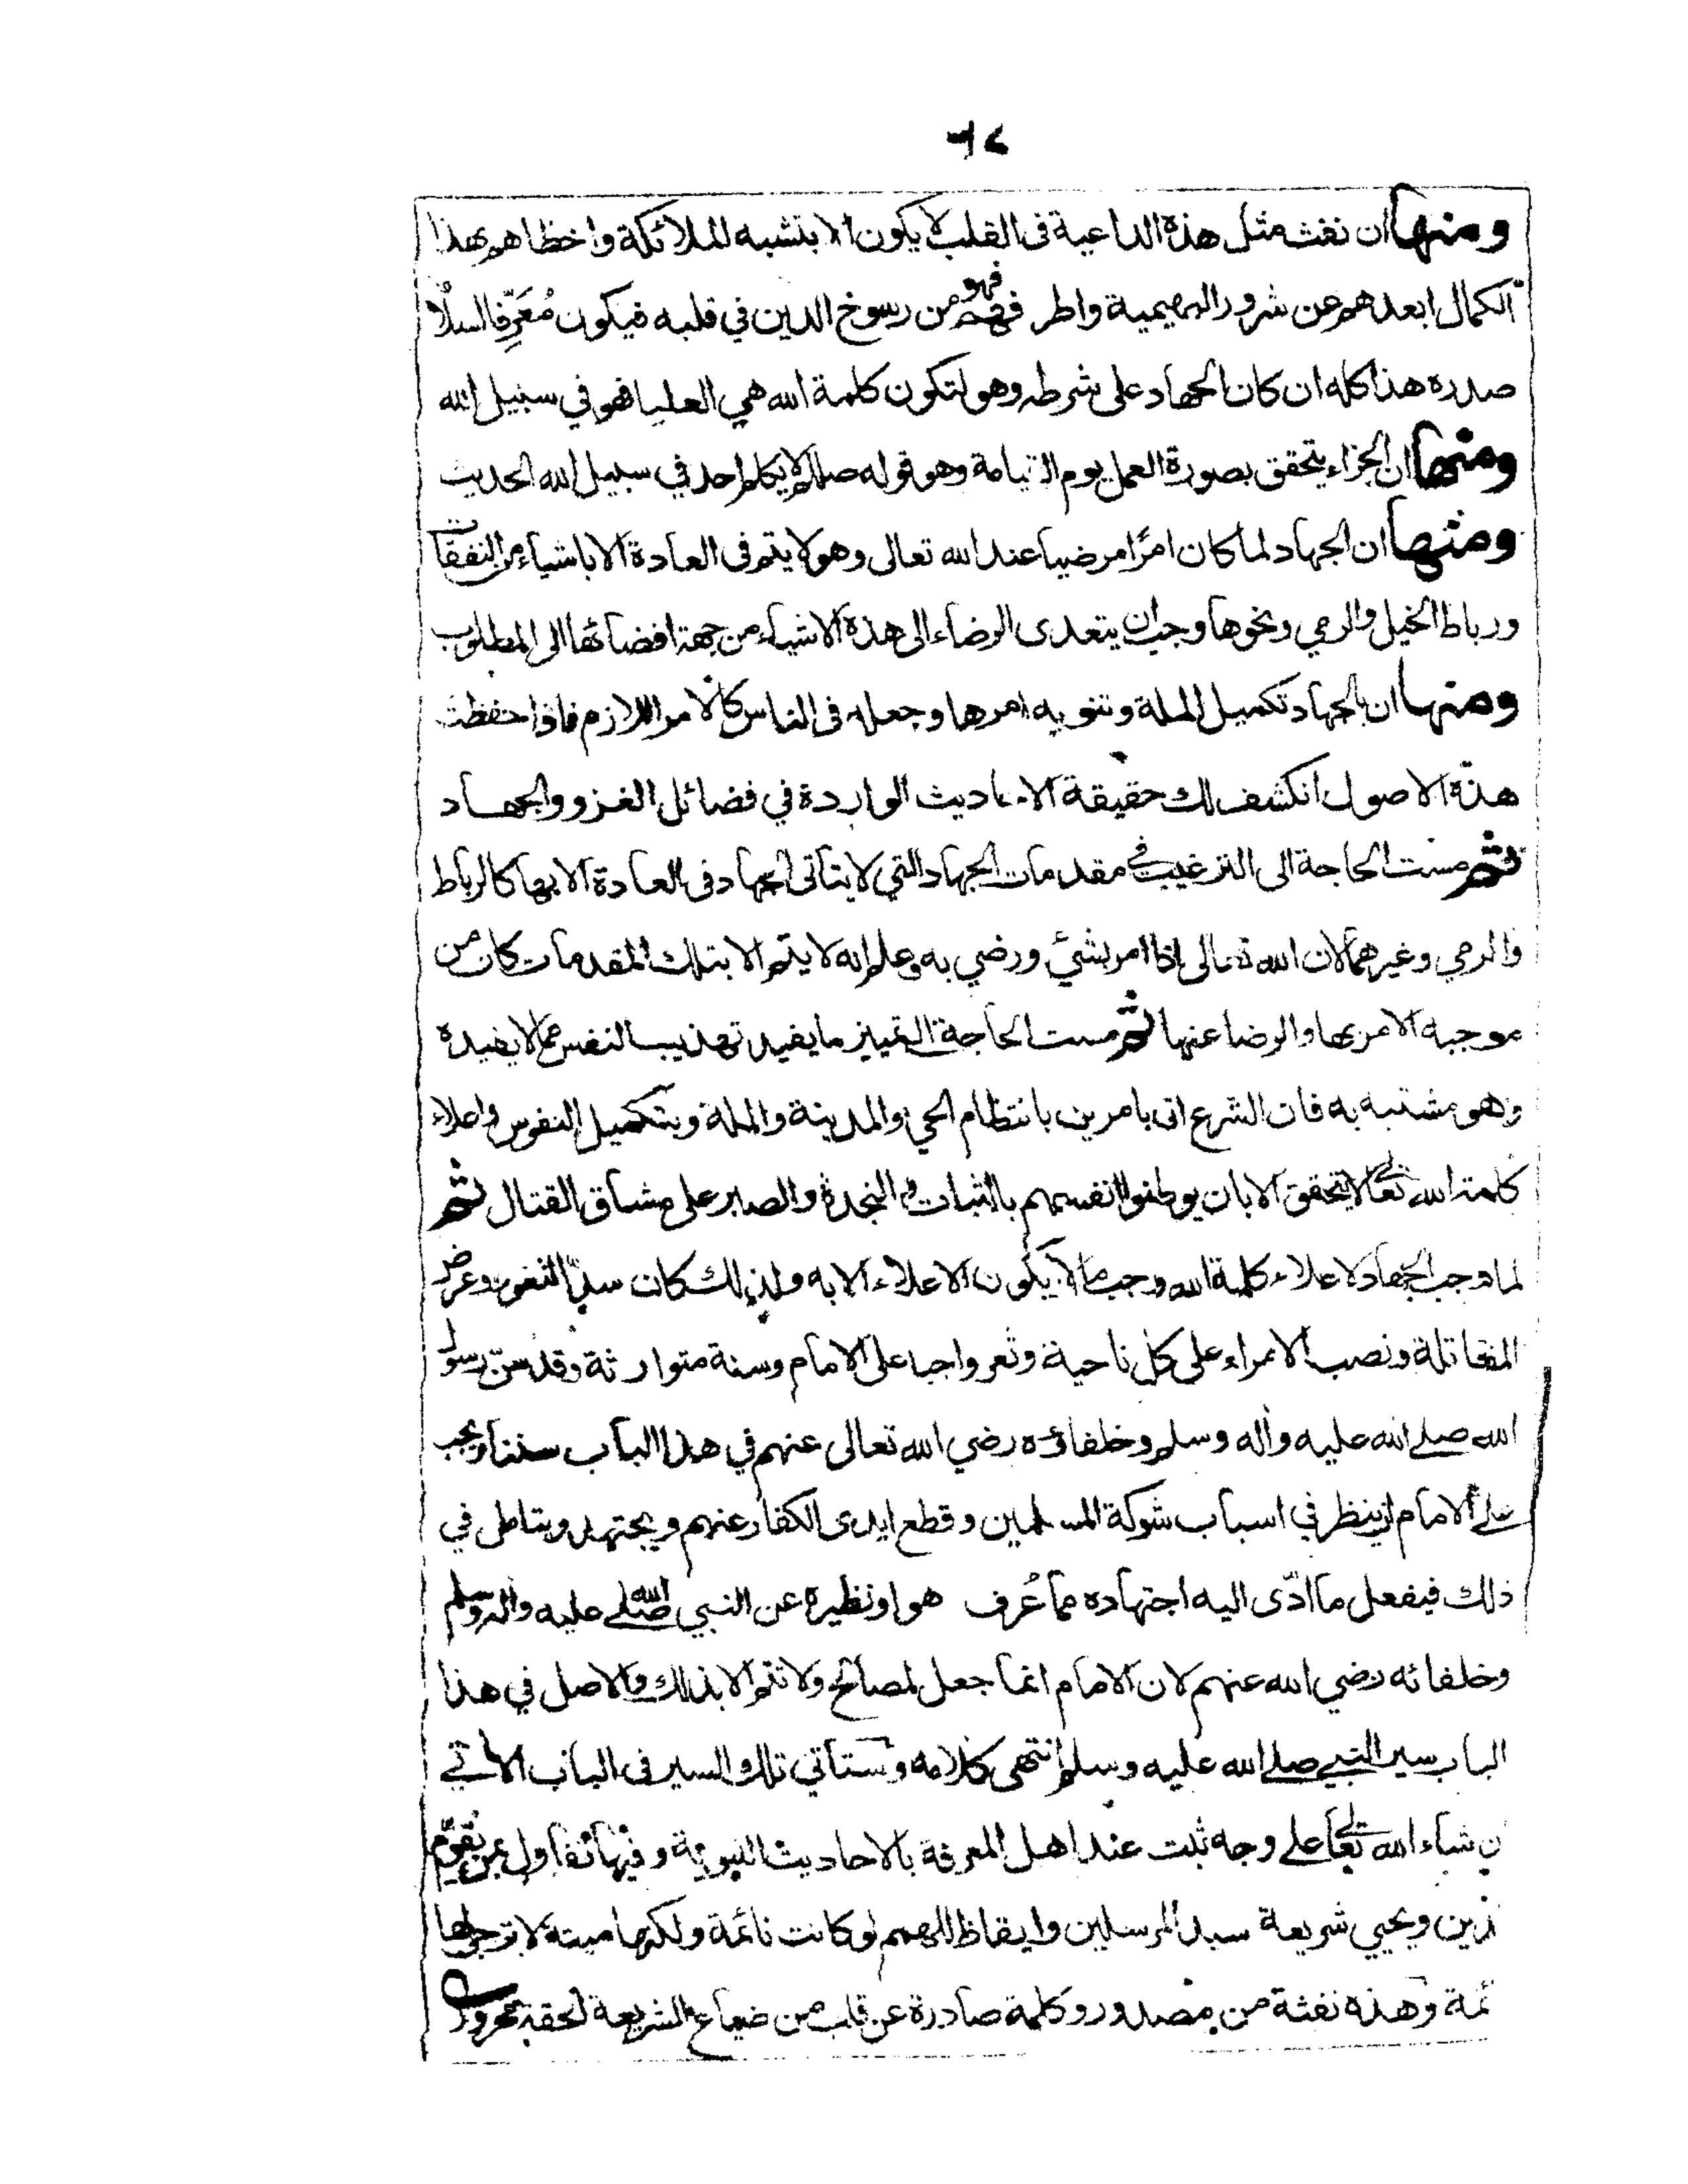 ٦٤
ومنها ان نفث مثل هذه الداعية فى القلب لا يكون الا بتشبه للملائكة واحظاهم بهذا
الكمال ابعدهم عن شرور البهيمية واطر فهم فهو من رسوخ الدين في قلبه فيكون مُعَرِّفا لسلا
صدره هذا كله ان كان الجهاد على شرطه وهو لتكون كلمة الله هي العليا فهو في سبيل الله
ومنها ان الجزاء يتحقق بصورة العمل يوم القيامة وهو قوله صللم لا يكلم احد في سبيل الله الحديث
ومنها ان الجهاد لما كان امرًا مرضيا عند الله تعالى وهو لا يتم فى العادة الا باشياء من النفقات
ورباط الخيل والرمي ونحوها وجب ان يتعدى الرضاء الى هذه الاشياء من جهة افضائها الى المطلوب
ومنها ان بالجهاد تكميل الملة وتنويه امرها وجعله فى الناس كالامر اللازم فاذا حفظت
هذه الاصول انكشف لك حقيقة الاحاديث الواردة في فضائل الغزو والجهاد
ثم مست الحاجة الى الترغيب في مقدمات الجهاد التي لا يتأتى الجهاد فى العادة الا بها كالرباط
والرمي وغيرهما لان الله تعالى اذا امر بشئ ورضي به وعلم انه لا يتم الا بتلك المقدمات كان من
موجبه الامر بها والرضا عنها ثم مست الحاجة الى تمييز ما يفيد تهذيب النفس مما لا يفيده
وهو مشتبه به فان الشرع اتى بامرين بانتظام الحي والمدينة والملة وبتكميل النفوس واعلاء
كلمة الله تعالى لا يتحقق الا بان يوطنوا انفسهم بالثبات والنجدة والصبر على مشاق القتال ثم
لما وجب الجهاد لاعلاء كلمة الله وجب ما لا يكون الاعلاء الا به ولذلك كان سدّ الثغور وعرض
المقاتلة ونصب الامراء على كل ناحية وثغر واجبا على الامام وسنة متوارثة وقد سنّ رسول
الله صلى الله عليه واله وسلم وخلفاؤه رضي الله تعالى عنهم في هذا الباب سننا ويجب
على الامام ان ينظر في اسباب شوكة المسلمين وقطع ايدى الكفار عنهم ويجتهد ويتامل في
ذلك فيفعل ما ادّى اليه اجتهاده مما عُرف هو او نظيره عن النبي صلى الله عليه واله وسلم
وخلفائه رضي الله عنهم لان الامام انما جعل لمصالح ولا تتم الا بذلك والاصل في هذا
الباب سير النبي صلى الله عليه وسلم انتهى كلامه وستأتي تلك السير فى الباب الاتي
ن شاء الله تعالى على وجه ثبت عند اهل المعرفة بالاحاديث النبوية وفيها تفاول عمن يقوّم
زين ويحيي شريعة سيد المرسلين وايقاظ للهمم لو كانت نائمة ولكنها ميتة لا ترجى لها
ئمة وهذه نفثة من مصدور وكلمة صادرة عن قلب من ضياع الشريعة الحقة محرور